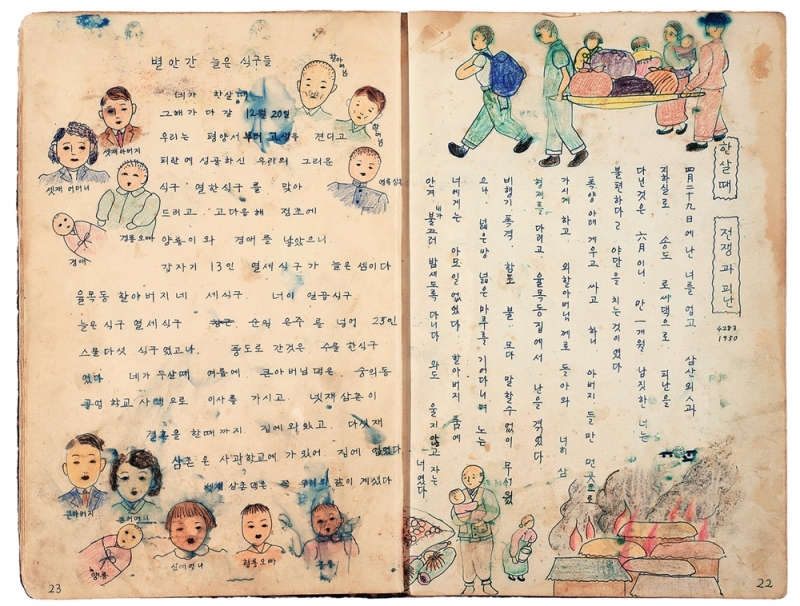 한살때
전쟁과 피난
4283
1950
四月二十九日에 난 너를 업고 삼산외스과
지하실로 송도 로써댁으로 피난을
다닌것은 六月이니 만 一개월 남짓한 너는
불편하다고 야만을 치는것이였다
폭양아래 게우고 싸고 하니 아버지들만 먼곳으로
가시게 하고 외할아버님께로 돌아와 너이 삼
형제를 다리고 율목동집에서 난을 겪었다
비행기 폭격 함포 불 모다 말할수 없이 무서웠
으나 넓은방 넓은마루를 기어다니며 노는
너에게는 아모일 없었다 할아버지 품에
안겨 네가 불끄러 밤새도록 다니다 와도 울지않고 자는
너였다
22
별안간 늘은 식구들
네가 한살때
그해가 다 갈 12월 20일
우리는 평양서부터 고생을 견디고
피란에 성공하신 우리의 그리운
식구 열한식구를 맞아
드리고 고다음해 정초에
양륭이와 경애를 낳았으니
갑자기 13인 열세식구가 늘은셈이다
율목동 할아버지네 세식구 너이 일곱식구
늘은식구 열세식구 순원 은주를 넘어 25인
스물다섯 식구였고나 풍도로 간것은 수물한식구
였다 네가 두살때 여름에 큰아버님댁은 숭의동
공업학교 사택으로 이사를 가시고 넷재삼촌이
결혼을 할때까지 집에 와있고 다섯재
삼촌은 사관학교에 가 있어 집에 없었다
삼촌댁은 쭉 우리와 같이 계셨다
할아버님
할머님
셋재아버지
셋재어머니
경륭오빠
경애
큰아버지
큰어머니
양륭
형륭오빠
23